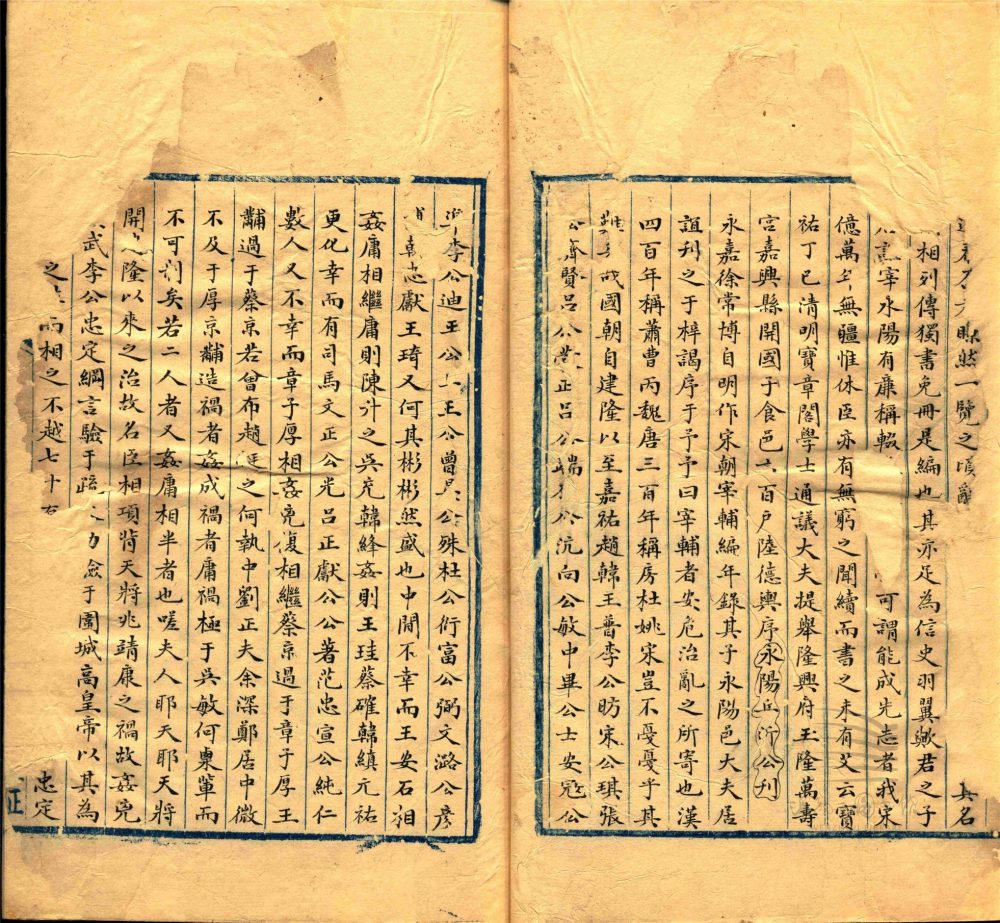 瞭然一覽之頃 其名
相列傳獨書免冊是編也其亦足為信史羽翼歟君之子
宰永陽有廉稱 可謂能成先志者我宋
億萬年無疆惟休臣亦有無窮之聞續而書之未有艾云寶
祐丁巳清明寶章閣學士通議大夫提舉隆興府玉隆萬壽
宮嘉興縣開國子食邑 百戶陸德輿序永陽 公刊
永嘉徐常博自明作宋朝宰輔編年錄其子永陽邑大夫居
誼刊之于梓謁序于予予曰宰輔者安危治亂之所寄也漢
四百年稱蕭曹丙魏唐三百年稱房杜姚宋豈不戞戞乎其
難 我國朝自建隆以至嘉祐趙韓王普李公昉宋公琪張
公齊賢呂公蒙正呂公端 公沆向公敏中畢公士安寇公
準李公迪王公 王公曾 公殊杜公衍富公弼文潞公彥
韓忠獻王琦又何其彬彬然盛也中間不幸而王安石相
姦庸相繼庸則陳升之吳充韓絳姦則王珪蔡確韓縝元祐
更化幸而有司馬文正公光呂正獻公公著范忠宣公純仁
數人又不幸而章子厚相姦兇復相繼蔡京過于章子厚王
黼過于蔡京若曾布趙挺之何執中劉正夫余深鄭居中微
不及于厚京黼造禍者姦成禍者庸禍極于吳敏何㮚輩而
不可利矣若二人者又姦庸相半者也嗟夫人耶天耶天將
開 隆以來之治故名臣相項背天將兆靖康之禍故姦兇
武李公忠定綱言驗于疏 力 于圍城高皇帝以其為
之 而相之不越七十 忠定